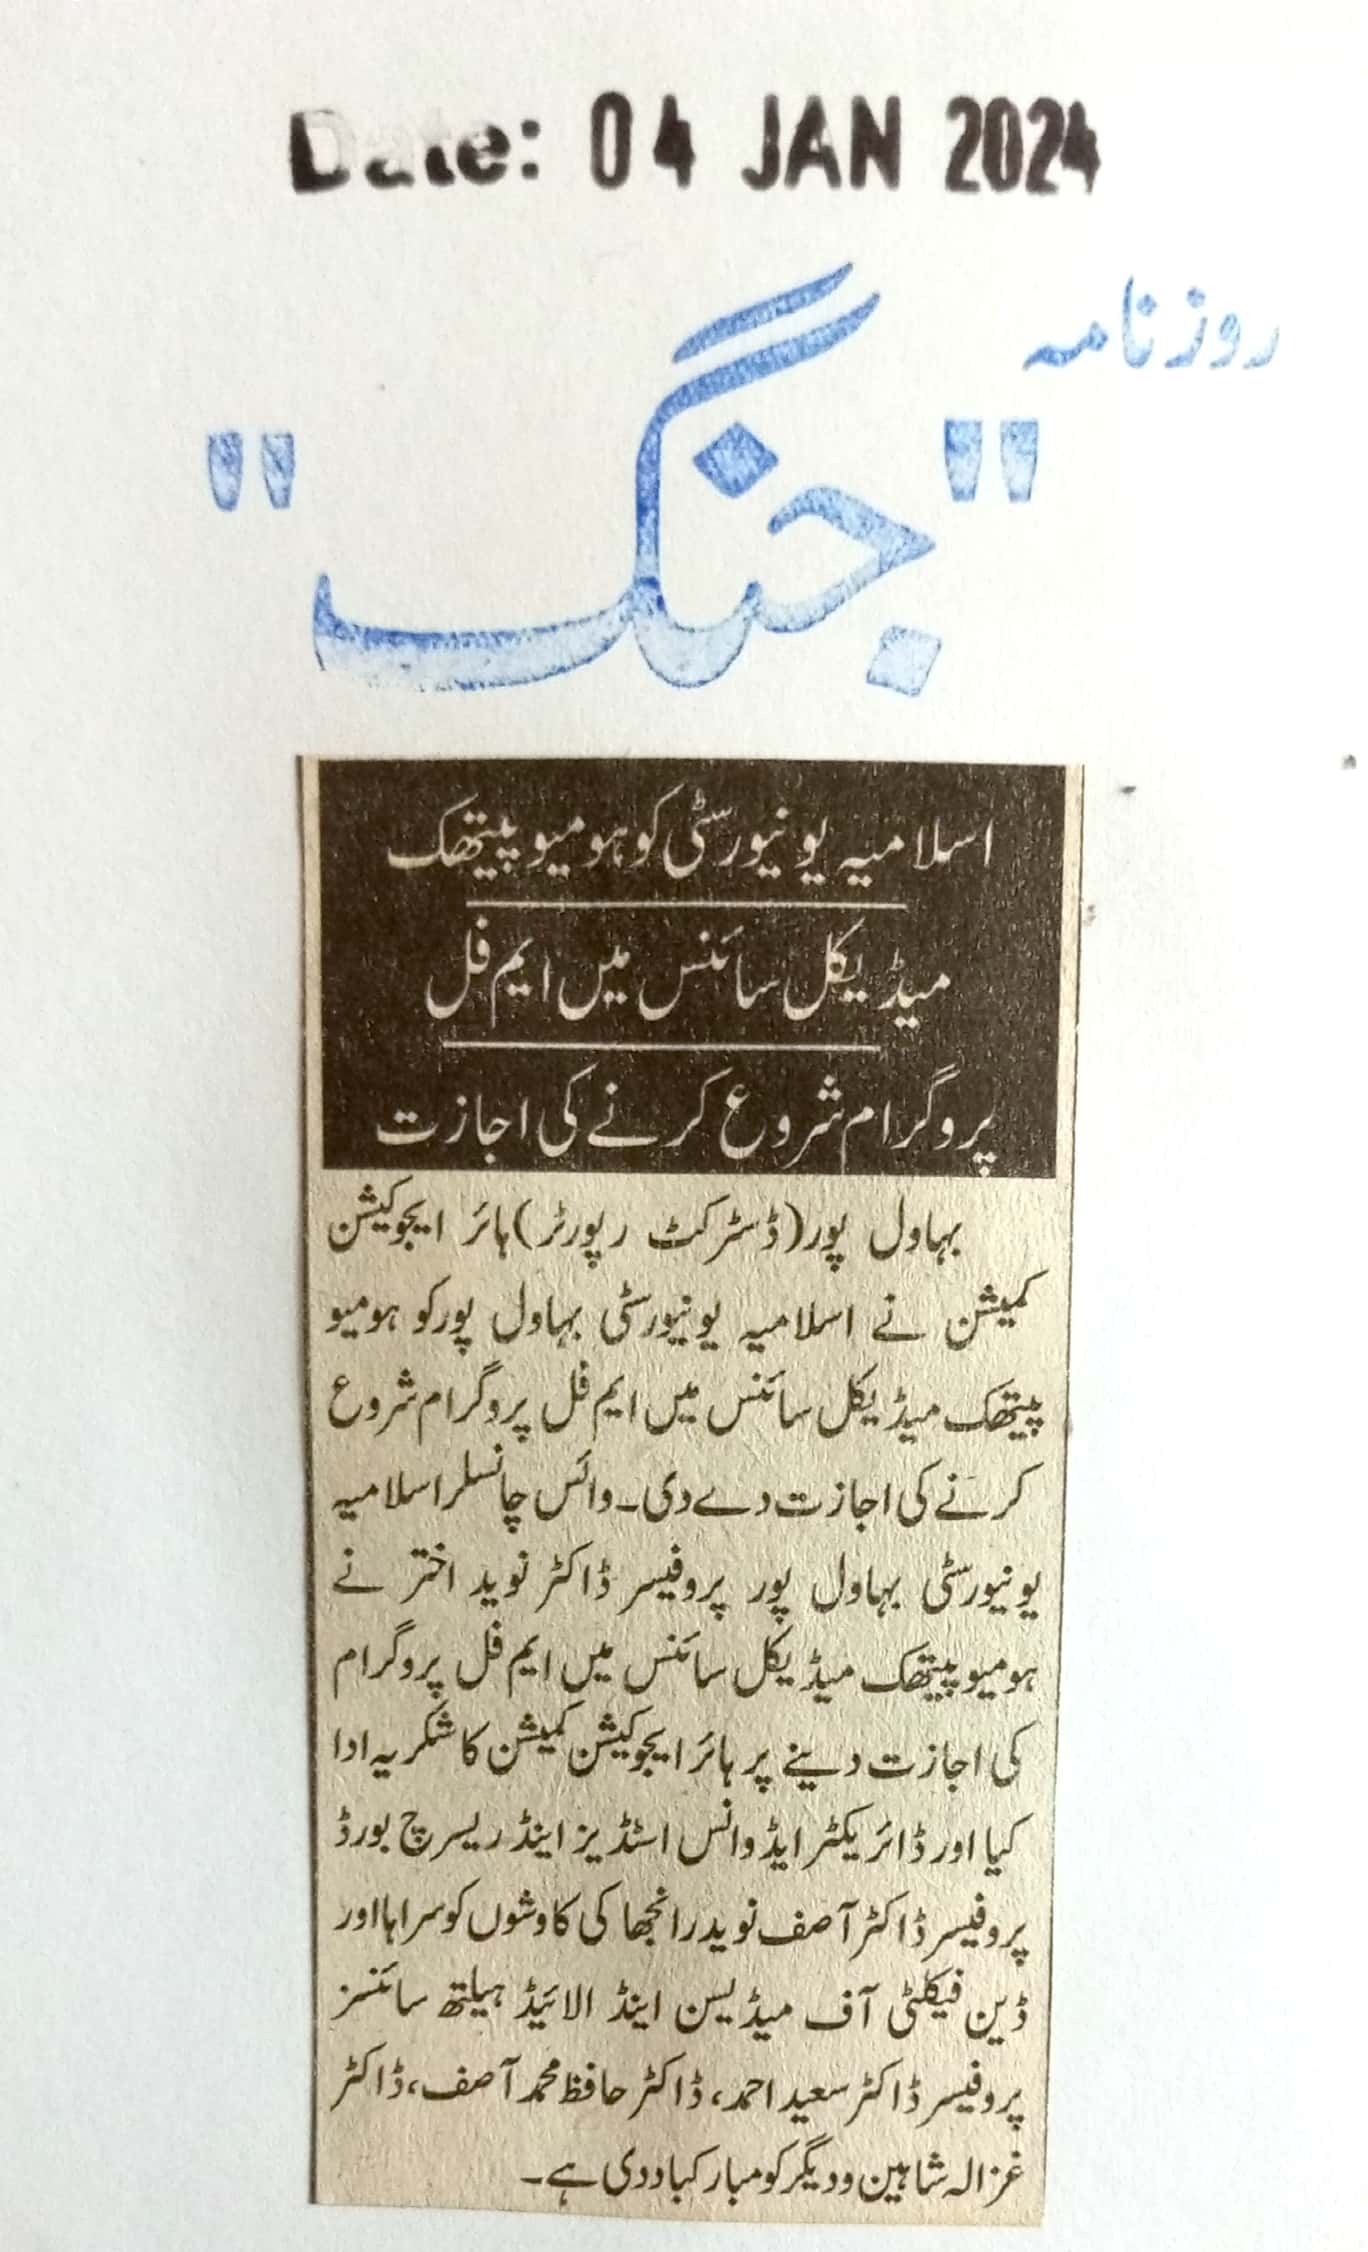 Date: 04 JAN 2024
روزنامہ
"جنگ"
اسلامیہ یونیورسٹی کو ہومیو پیتھک
میڈیکل سائنس میں ایم فل
پروگرام شروع کرنے کی اجازت
بہاول پور (ڈسٹرکٹ رپورٹر) ہائر ایجوکیشن
کمیشن نے اسلامیہ یونیورسٹی بہاول پور کو ہومیو
پیتھک میڈیکل سائنس میں ایم فل پروگرام شروع
کرنے کی اجازت دے دی۔ وائس چانسلر اسلامیہ
یونیورسٹی بہاول پور پروفیسر ڈاکٹر نوید اختر نے
ہومیو پیتھک میڈیکل سائنس میں ایم فل پروگرام
کی اجازت دینے پر ہائر ایجوکیشن کمیشن کا شکریہ ادا
کیا اور ڈائریکٹر ایڈوانس اسٹڈیز اینڈ ریسرچ بورڈ
پروفیسر ڈاکٹر آصف نوید رانجھا کی کاوشوں کو سراہا اور
ڈین فیکلٹی آف میڈیسن اینڈ الائیڈ ہیلتھ سائنسز
پروفیسر ڈاکٹر سعید احمد، ڈاکٹر حافظ محمد آصف، ڈاکٹر
غزالہ شاہین ودیگر کو مبارکباد دی ہے۔